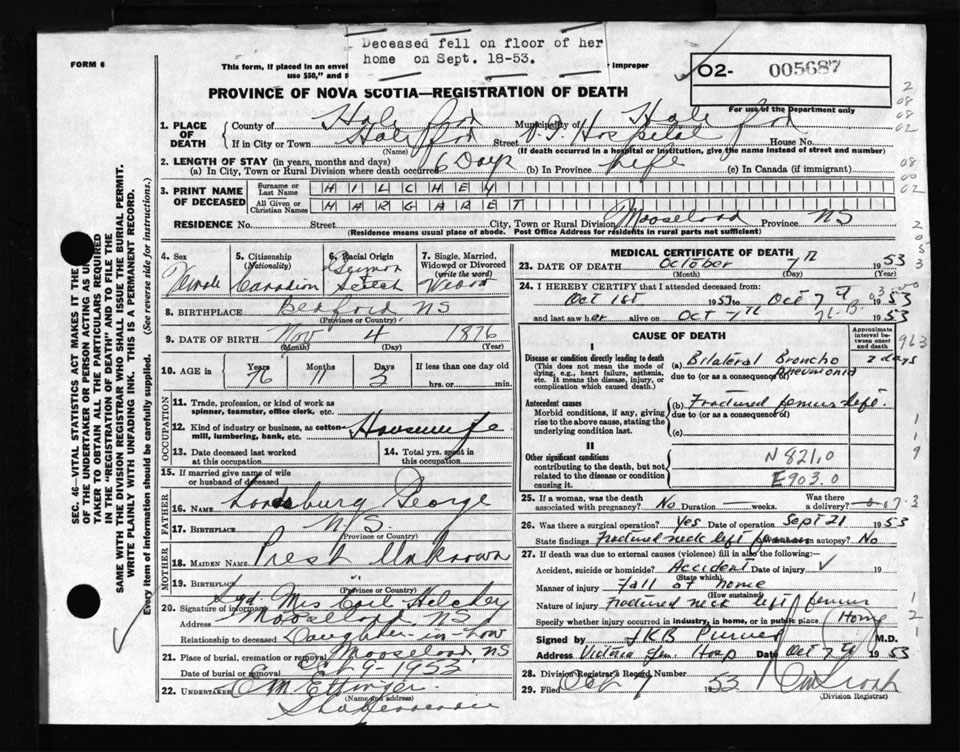 Deceased fell on floor of her
home on Sept. 18-53.
FORM 6
This form, if placed in an envel
improper
use $50," and
O2- 005687
PROVINCE OF NOVA SCOTIA—REGISTRATION OF DEATH
For use of the Department only
1. PLACE OF DEATH
County of Halifax Municipality of Halifax
If in City or Town Halifax Street V.G. Hospital House No.
(Name) (If death occurred in a hospital or institution, give the name instead of street and number)
2. LENGTH OF STAY (in years, months and days)
(a) In City, Town or Rural Division where death occurred 6 Days (b) In Province Life (c) In Canada (if immigrant)
3. PRINT NAME OF DECEASED
Surname or Last Name HILCHEY
All Given or Christian Names MARGARET
RESIDENCE No. Street City, Town or Rural Division Mooseland Province NS
(Residence means usual place of abode. Post Office Address for residents in rural parts not sufficient)
4. Sex Female
5. Citizenship (Nationality) Canadian
6. Racial Origin German Scotch
7. Single, Married, Widowed or Divorced (write the word) Widow
8. BIRTHPLACE Bedford NS
(Province or Country)
9. DATE OF BIRTH Nov 4 1876
(Month) (Day) (Year)
10. AGE in Years Months Days If less than one day old
76 11 3 hrs. or min.
OCCUPATION
11. Trade, profession, or kind of work as spinner, teamster, office clerk, etc.
12. Kind of industry or business, as cotton-mill, lumbering, bank, etc. Housewife
13. Date deceased last worked at this occupation
14. Total yrs. spent in this occupation
15. If married give name of wife or husband of deceased
FATHER
16. NAME George
17. BIRTHPLACE N.S.
(Province or Country)
MOTHER
18. MAIDEN NAME Prest Unknown
19. BIRTHPLACE "
(Province or Country)
20. Signature of informant Sgd. Mrs
Address Mooseland, NS
Relationship to deceased Daughter-in-law
21. Place of burial, cremation or removal Mooseland, NS
Date of burial or removal Oct 9-1953
22. UNDERTAKER E M Ettinger
(Name and address)
MEDICAL CERTIFICATE OF DEATH
23. DATE OF DEATH October 7th 1953
(Month) (Day) (Year)
24. I HEREBY CERTIFY that I attended deceased from:
Oct 1st 1953 to Oct 7th 1953
and last saw her alive on Oct 7th 1953
CAUSE OF DEATH
Approximate interval between onset and death
I
Disease or condition directly leading to death
(This does not mean the mode of dying, e.g., heart failure, asthenia, etc. It means the disease, injury, or complication which caused death.)
(a) Bilateral Broncho Pneumonia 2 days
due to (or as a consequence of)
Antecedent causes
Morbid conditions, if any, giving rise to the above cause, stating the underlying condition last.
(b) Fractured femur left.
due to (or as a consequence of)
(c)
II
Other significant conditions
contributing to the death, but not related to the disease or condition causing it
N821.0
E903.0
25. If a woman, was the death associated with pregnancy? No Duration weeks. Was there a delivery?
26. Was there a surgical operation? Yes Date of operation Sept 21 1953
State findings Fractured neck left femur Was there an autopsy? No
27. If death was due to external causes (violence) fill in also the following:—
Accident, suicide or homicide? Accident Date of injury ✓ 19
(State which)
Manner of injury Fall at home
(How sustained)
Nature of injury Fractured neck left femur
Specify whether injury occurred in industry, in home, or in public place. (Home)
Signed by JKB Purves M.D.
Address Victoria Gen. Hosp Date Oct 7th 1953
28. Division Registrar's Record Number
29. Filed Oct 9 1953
(Division Registrar)
SEC. 46—VITAL STATISTICS ACT MAKES IT THE
OF THE UNDERTAKER OR PERSON ACTING AS UN
TAKER TO OBTAIN ALL THE PARTICULARS REQUIRED
IN THE "REGISTRATION OF DEATH" AND TO FILE THE
SAME WITH THE DIVISION REGISTRAR WHO SHALL ISSUE THE BURIAL PERMIT.
WRITE PLAINLY WITH UNFADING INK. THIS IS A PERMANENT RECORD.
Every item of information should be carefully supplied. (See reverse side for instructions.)